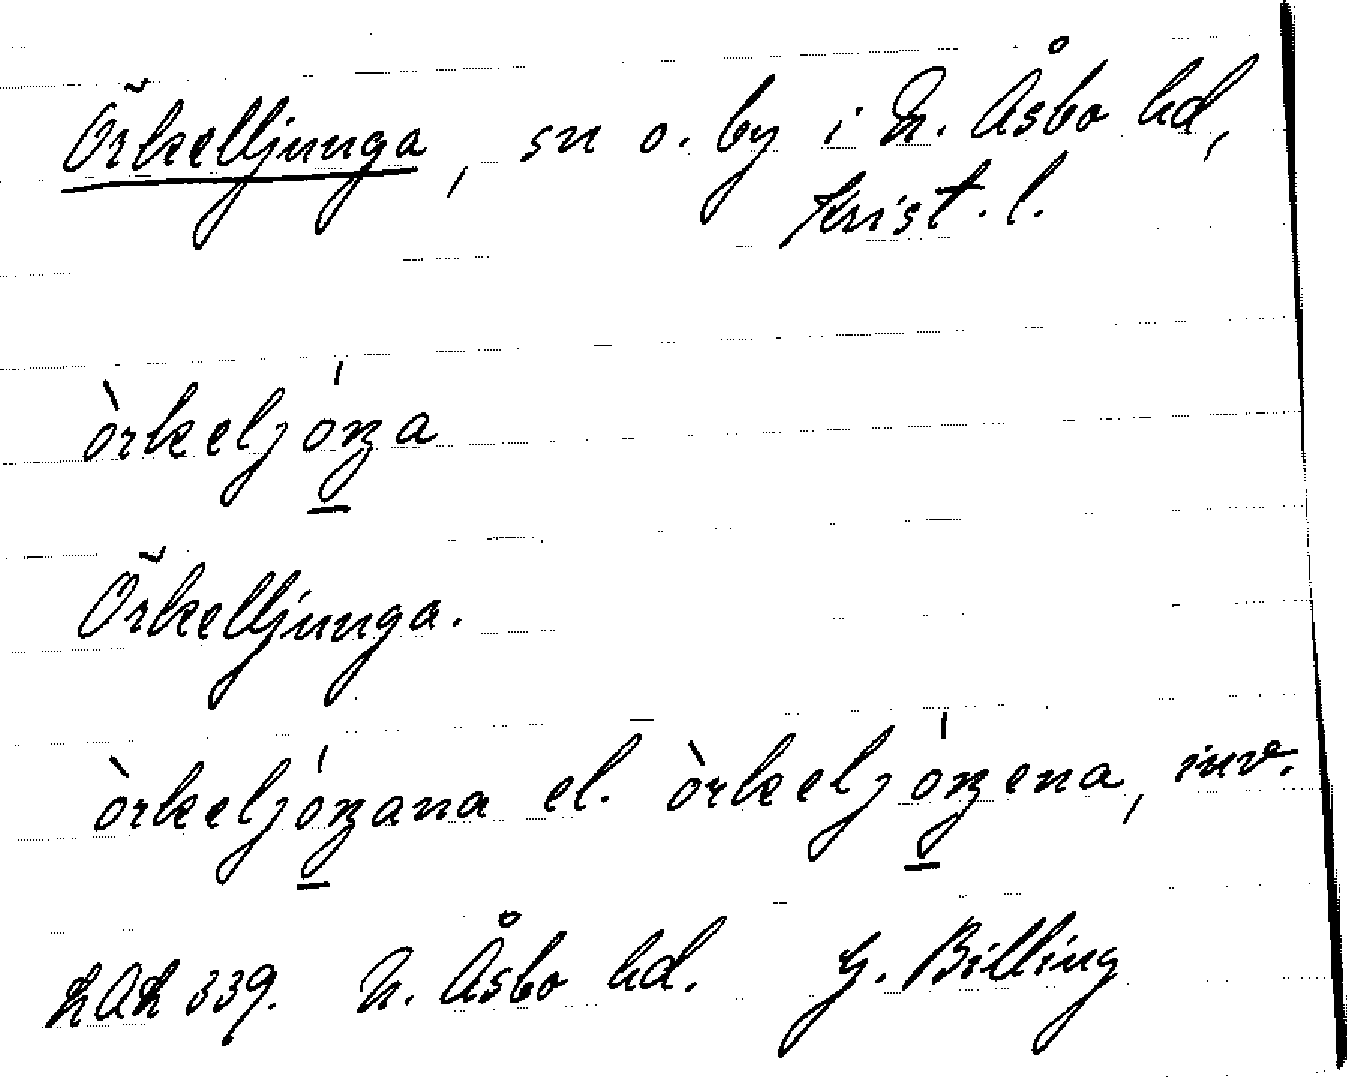 Örkelljunga, sn o. by i N. Åsbo hd,
Krist. l.
òrkeljóŋa
Örkelljunga.
òrkeljóŋana el. òrkeljóŋena, inv.
LAL 339. N. Åsbo hd. G. Billing